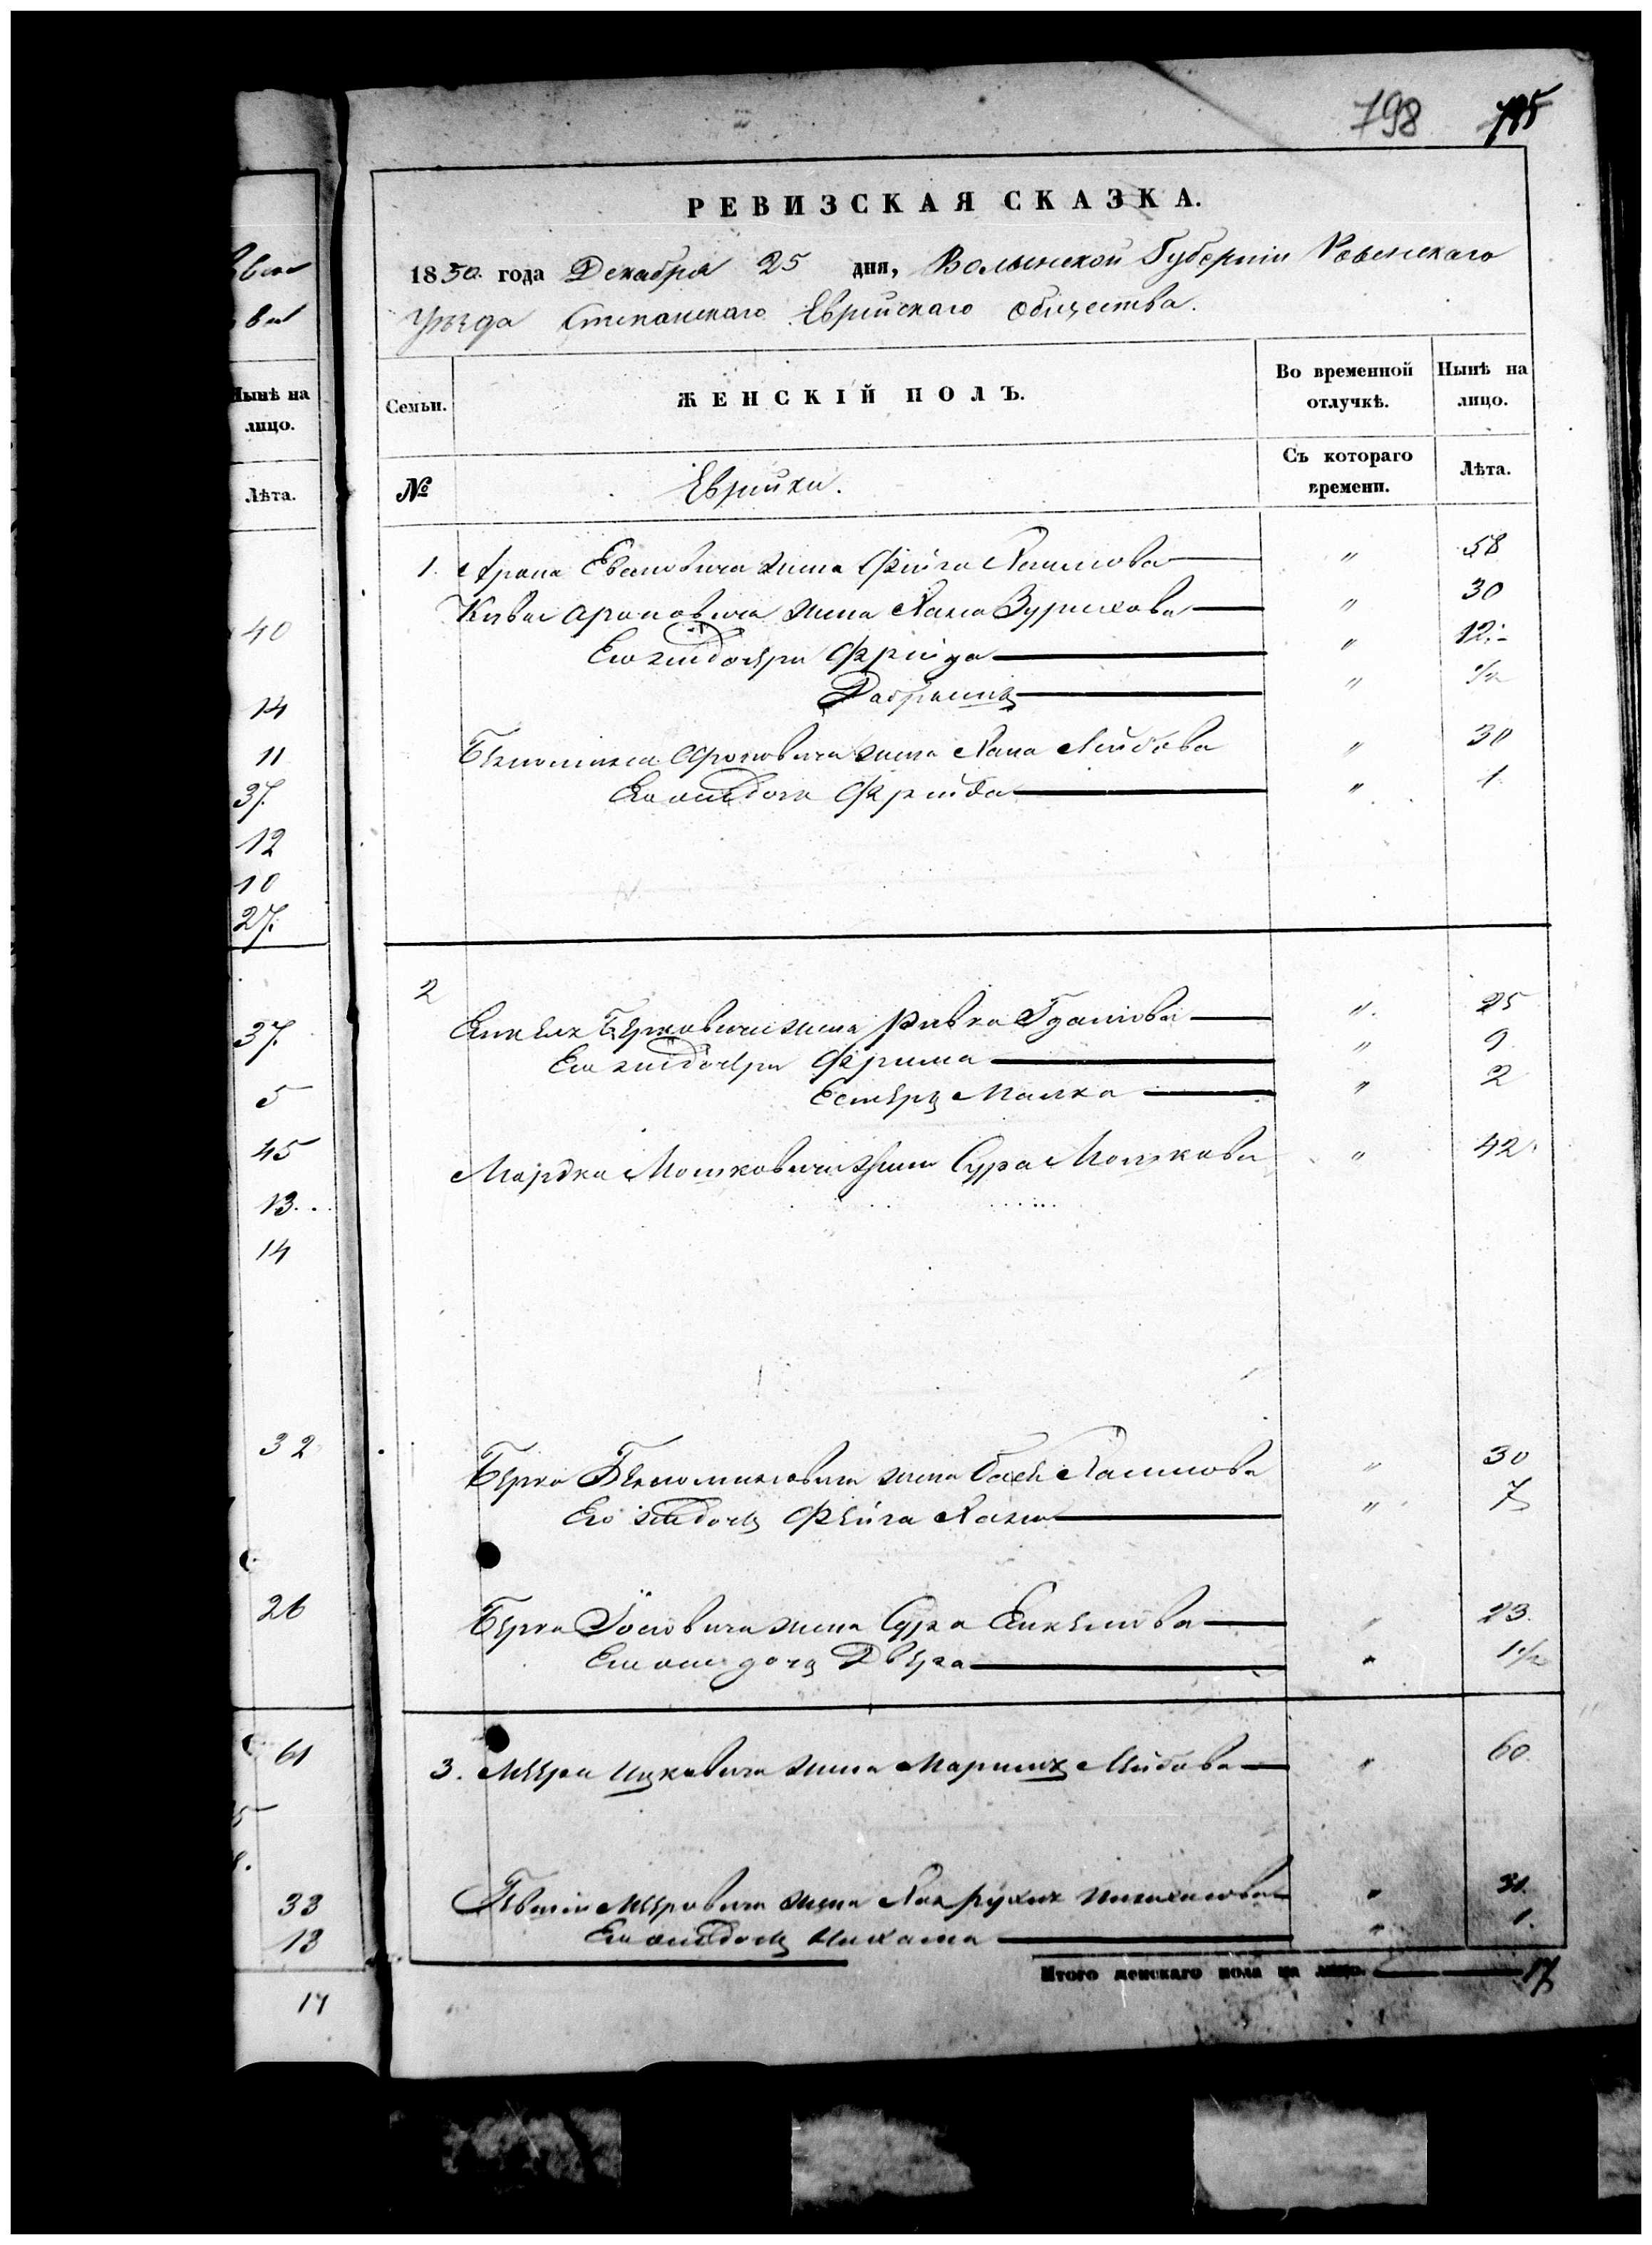 798 795
РЕВИЗСКАЯ СКАЗКА.
1850 года Декабря 25 дня, Волынской Губерніи Ровенскаго
Уѣзда Степанскаго Еврейскаго Общества.
Семьи. ЖЕНСКІЙ ПОЛЪ. Во временной отлучкѣ. Нынѣ на лицо.
№ Еврейки. Съ котораго времени. Лѣта.
1. Арона жена Фейга Хаимова " 58
Кивы Ароновича жена Хана " 30
Его дочери Фрейда " 12
" 1/2
Беніомина Ароновича жена Хана Лейбова " 30
дочь Фрейда " 1.
2
Янкеля Берковича жена Ривка " 25
Его дочери Фрима " 9
Естеръ Малка " 2
Мордка Мошковича жена Сура Мошкова " 42
Берка Беніоминовича жена Бася Хаимова " 30
Его дочь Фейга Хана " 7
Берка Іосіовича жена Сура Янкелева " 23.
дочь Двера " 1 1/2
3. Меера Ицковича жена Маріимъ Лейбова " 60.
Мееровича жена " 31.
дочь " 1.
Итого женскаго пола на лицо. 17
Нынѣ на лицо.
Лѣта.
40
14
11
37.
12
10
27.
37.
5
45
13..
14
32
26
61
33
13